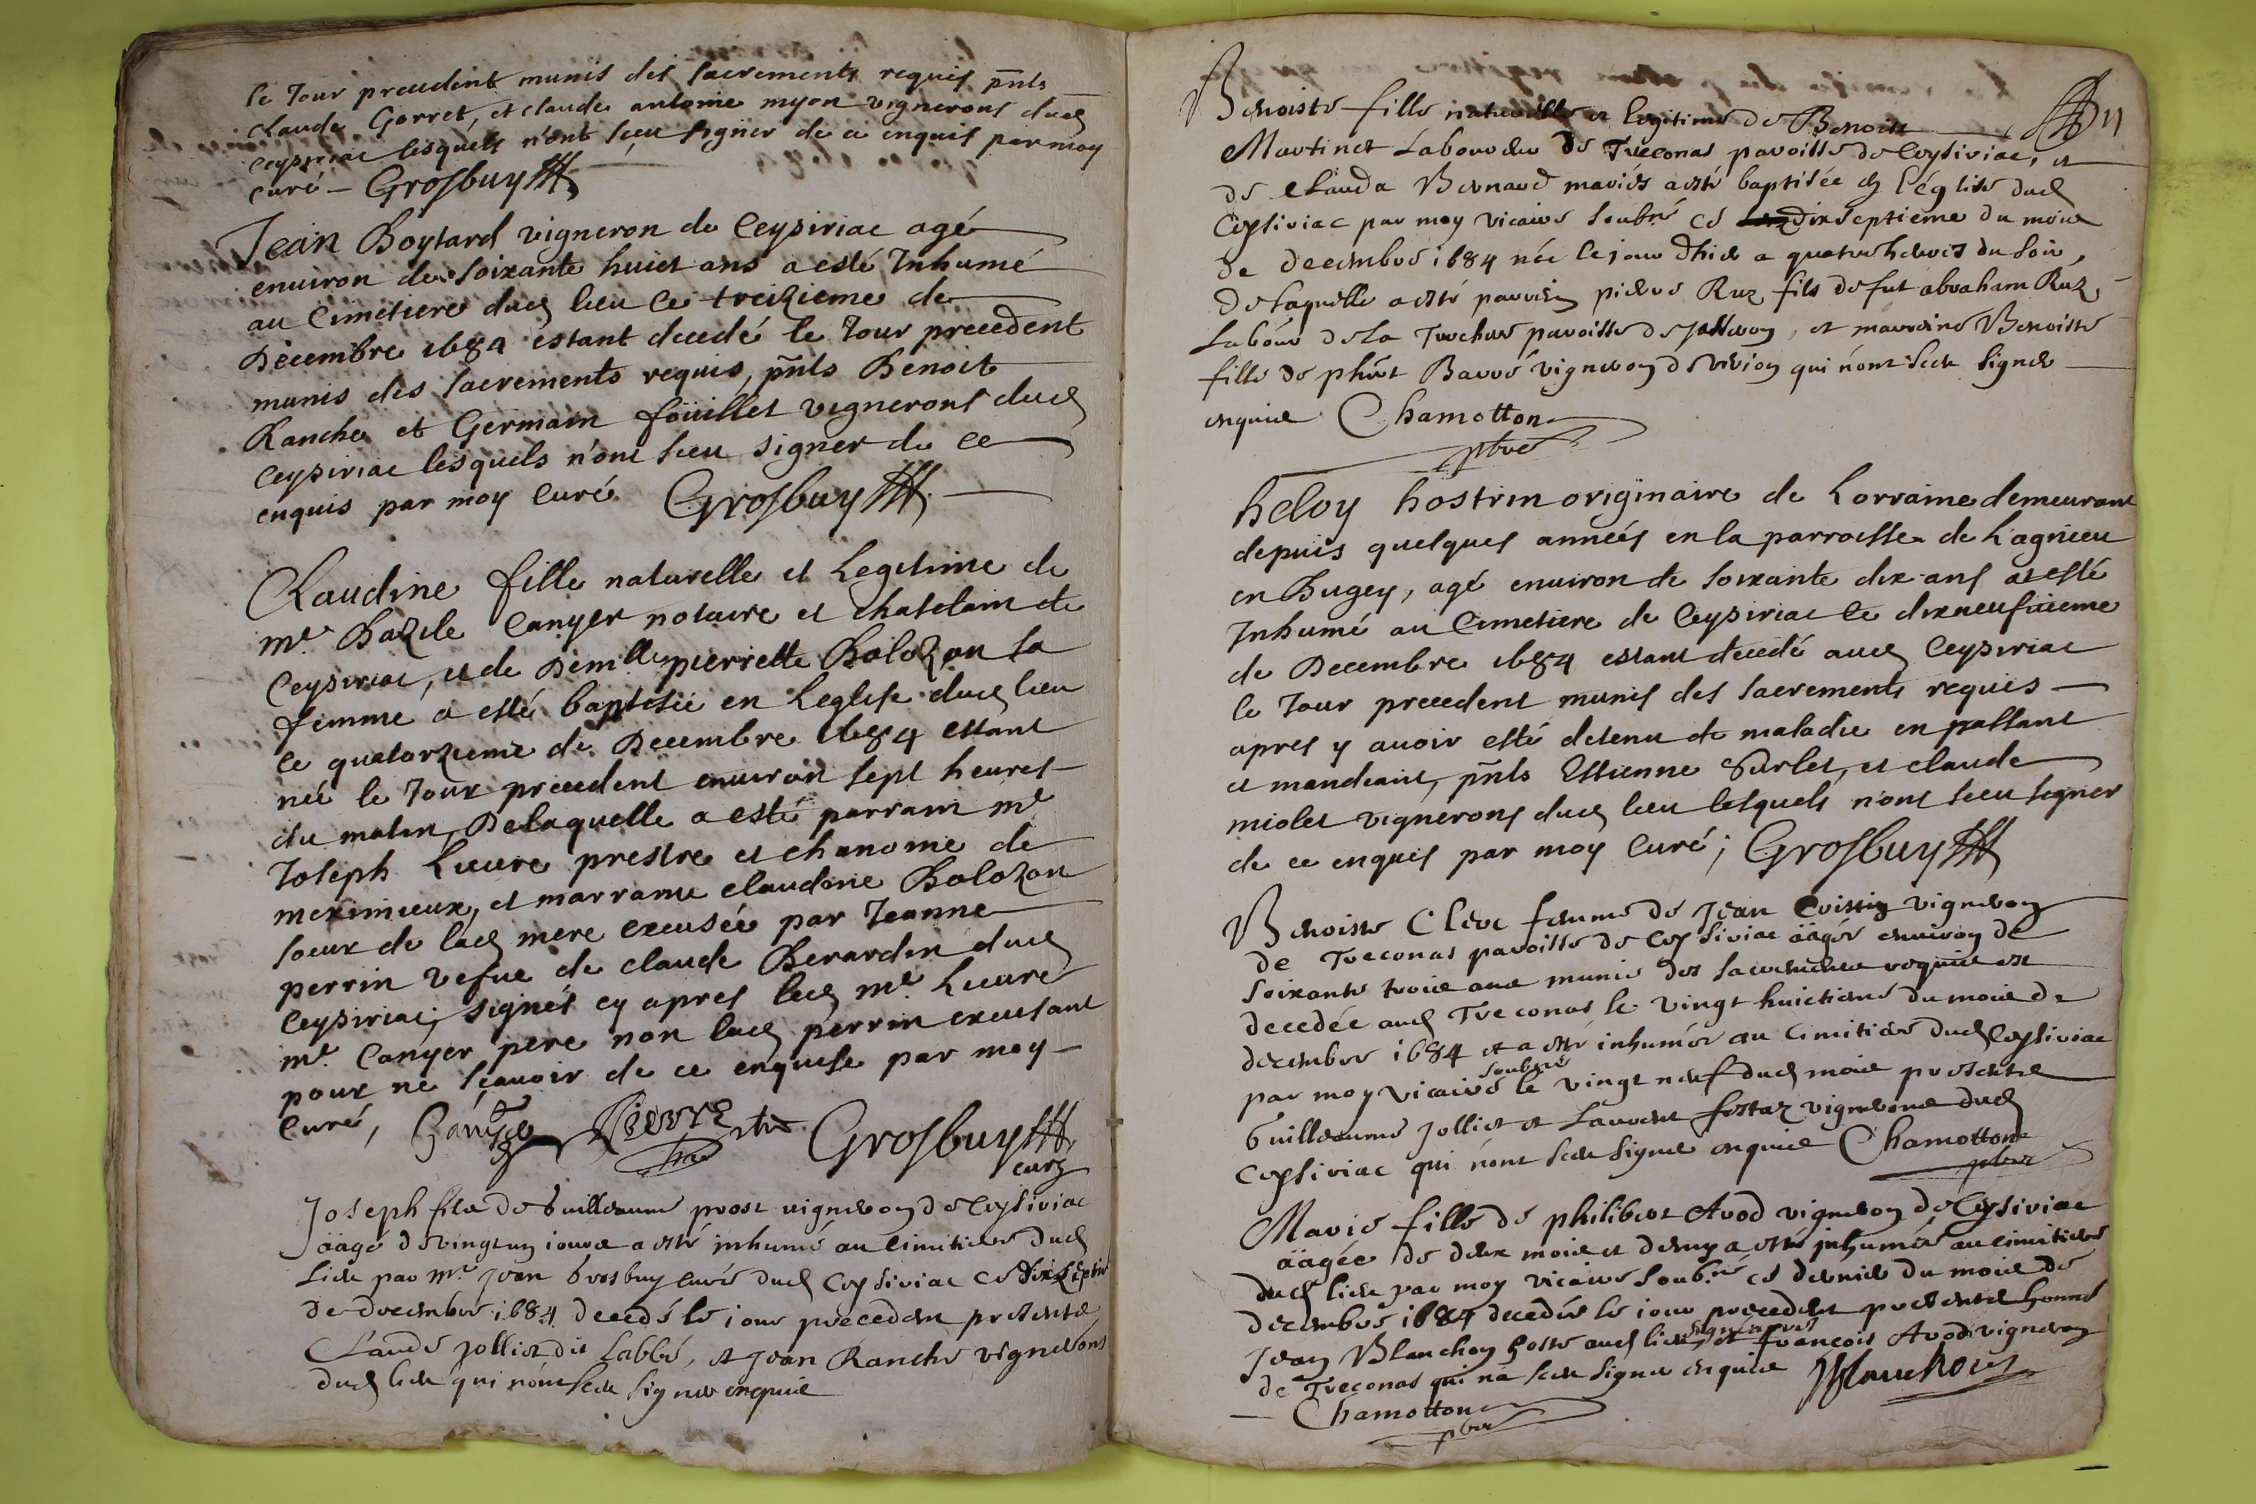 le Jour precedent munis des sacrements requis pnts
claude Gorret, et claude antoine myon vignerons dud
ceysiriac lesquels n'ont sceu signer de ce enquis par moy
curé – Grosbuy
Jean Boytard vigneron de Ceysiriac agé
enuiron de soixante huict ans a esté Inhumé
au Cimetiere dud lieu ce treizieme de
Decembre 1684 estant decedé le Jour precedent
munis des sacrements requis, pnts Benoit
Ranche et Germain foüillet vignerons dud
Ceysiriac lesquels n'ont sceu signer de ce
enquis par moy Curé Grosbuy
Claudine fille naturelle et Legitime de
me. Bazile Canyer notaire et chatelain de
Ceysiriac, et de Demlle pierrette Bolozon sa
femme a esté baptisée en Leglise dud lieu
ce quatorzieme de Decembre 1684 estant
née le Jour precedent enuiron sept heures
du matin, Delaquelle a esté parrain me
Joseph Lieure prestre et chanoine de
meximieux, et marraine claudine Bolozon
soeur de lad mere excusée par Jeanne
perrin vefue de claude Berardin dud
Ceysiriac, signés cy apres led me. Lieure
me. Canyer pere non lad perrin excusant
pour ne sçauoir de ce enquise par moy
Curé, Canyer Lieure ptre Grosbuy
curé
Joseph fils de Guillaume prost vigneron de Ceysiriac
äagé de vingt un iours a esté inhumé au Cimitiere dud
Lieu par me. Jean Grosbuy curé dud Ceysiriac ce dixseptie
de decembre 1684 decedé le iour precedent presents
Claude Jolliet dit Labbé, et Jean Ranche vignerons
dud lieu qui n'ont sceu signer enquis
Benoiste fille naturelle et legitime de Benoist
Martinet Laboureur de Treconas paroisse de Ceysiriac, et
de Clauda Bernard mariés a esté baptisée en l'église dud
Ceysiriac par moy vicaire soubné ce dixseptieme du mois
de decembre 1684 née le jour d'hier a quatre heures du soir,
de laquelle a esté parrein pierre Ruz fils de fut abraham Ruz
Labour de la Trechere paroisse de Jasseron, et marreine Benoiste
fille de phibert Barré vigneron de Ririon qui n'ont sceu signer
enquis Chamotton
ptre
heloy hostrin originaire de Lorraine demeurant
depuis quelques années en la parroisse de Lagnieu
en Bugey, agé enuiron de soixante dix ans a esté
Inhumé au Cimetiere de Ceysiriac ce dixneufuieme
de Decembre 1684 estant decedé aud Ceysiriac
le Jour precedent munis des sacrements requis
apres y auoir esté detenu de maladie en passant
et mandeant, pnts Estienne Surlet, et claude
miolet vignerons dud lieu lesquels n'ont sceu signer
de ce enquis par moy Curé; Grosbuy
Benoiste Clerc femme de Jean Coissin vigneron
de Treconas paroisse de Ceysiriac äagée enuiron de
soixante trois ans munie des sacrements requis est
decedée aud Treconas le vingt huictieme du mois de
decembre 1684 et a esté inhumée au cimitiere dud Ceysiriac
par moy vicaire soubné le vingt neuf dud mois presents
Guilleaume Jolliet et Laurent fostaz vignerons dud
Ceysiriac qui n'ont sceu signer enquis Chamotton
ptre
Marie fille de philibert Avod vigneron de Ceysiriac
äagée de deux mois et demy a esté inhumée au cimitiere
dud lieu par moy vicaire soubné ce dernier du mois de
decembre 1684 decedée le iour precedent presents honné
Jean Blanchon hoste aud lieu signé apres et françois Avod vigneron
de Treconas qui n'a sceu signer enquis JBlanchon
Chamotton
ptre